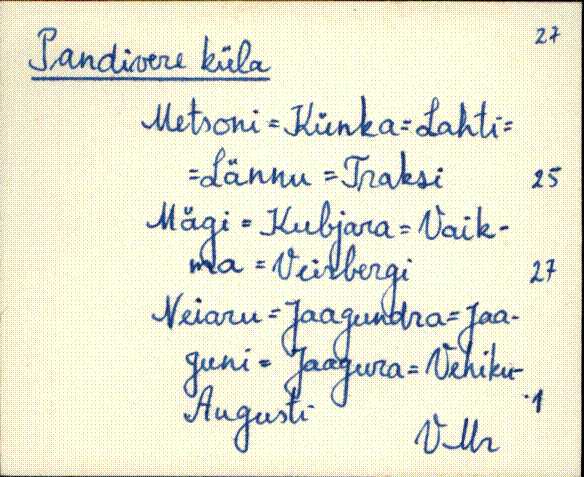 27
Pandivere küla
Metsoni = Künka = Lahti =
= Lännu = Traksi 25
Mägi = Kubjara = Vaik-
ma = Veisbergi 27
Neiaru = Jaagundra = Jaa-
guni = Jaagura = Vehiku-
Augusti 1
V Mr